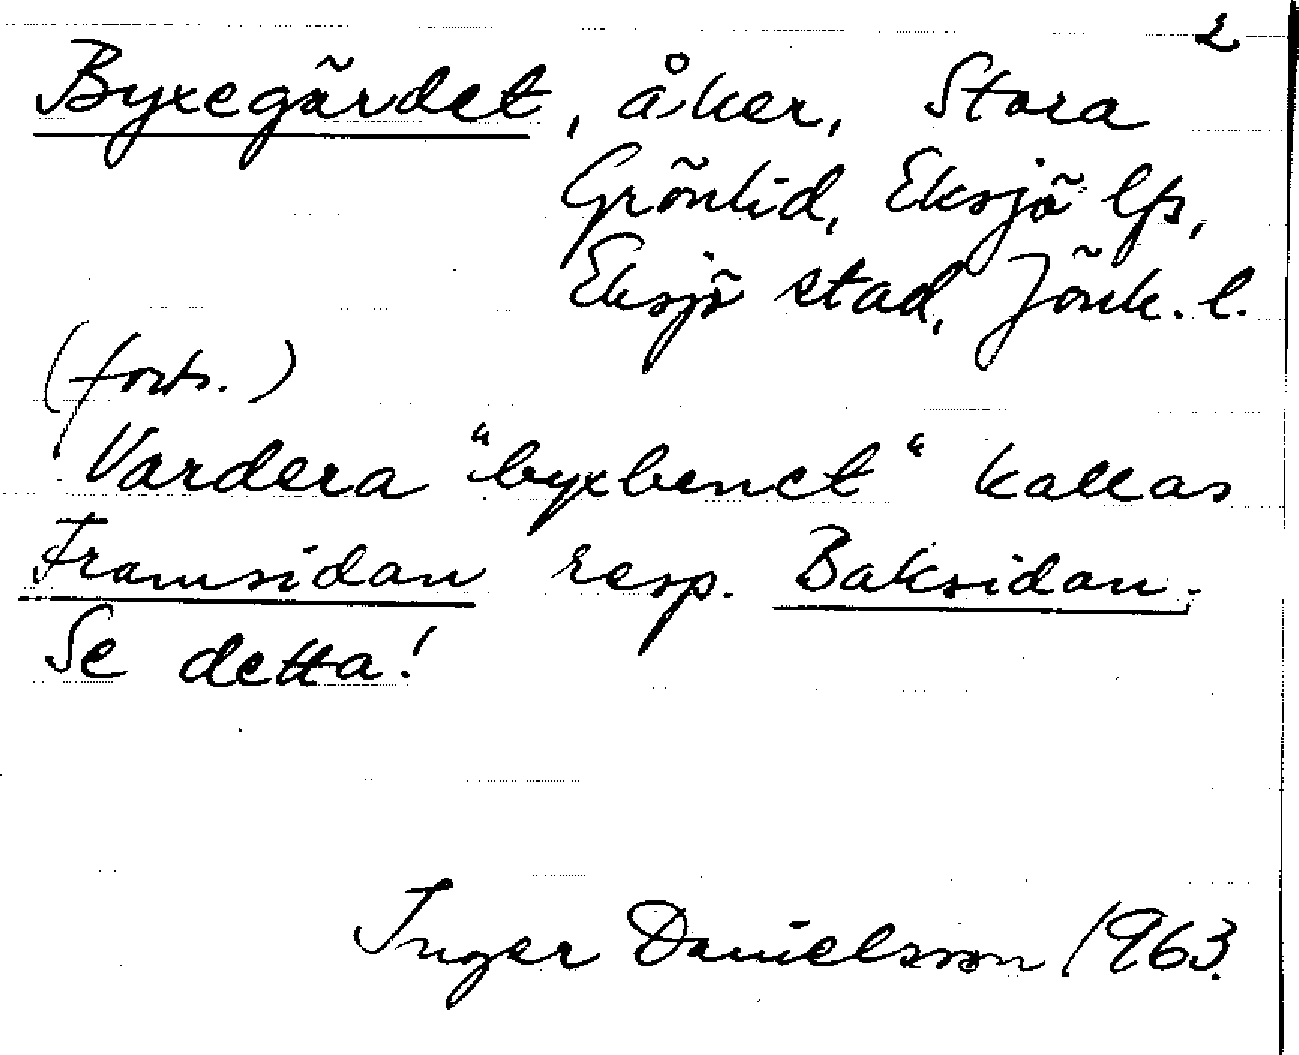 2
Byxegärdet, åker, Stora
Grönlid, Eksjö lfs,
Eksjö stad, Jönk. l.
(forts.)
Vardera "byxbenet" kallas
Framsidan resp. Baksidan.
Se detta!
Inger Danielsson 1963.